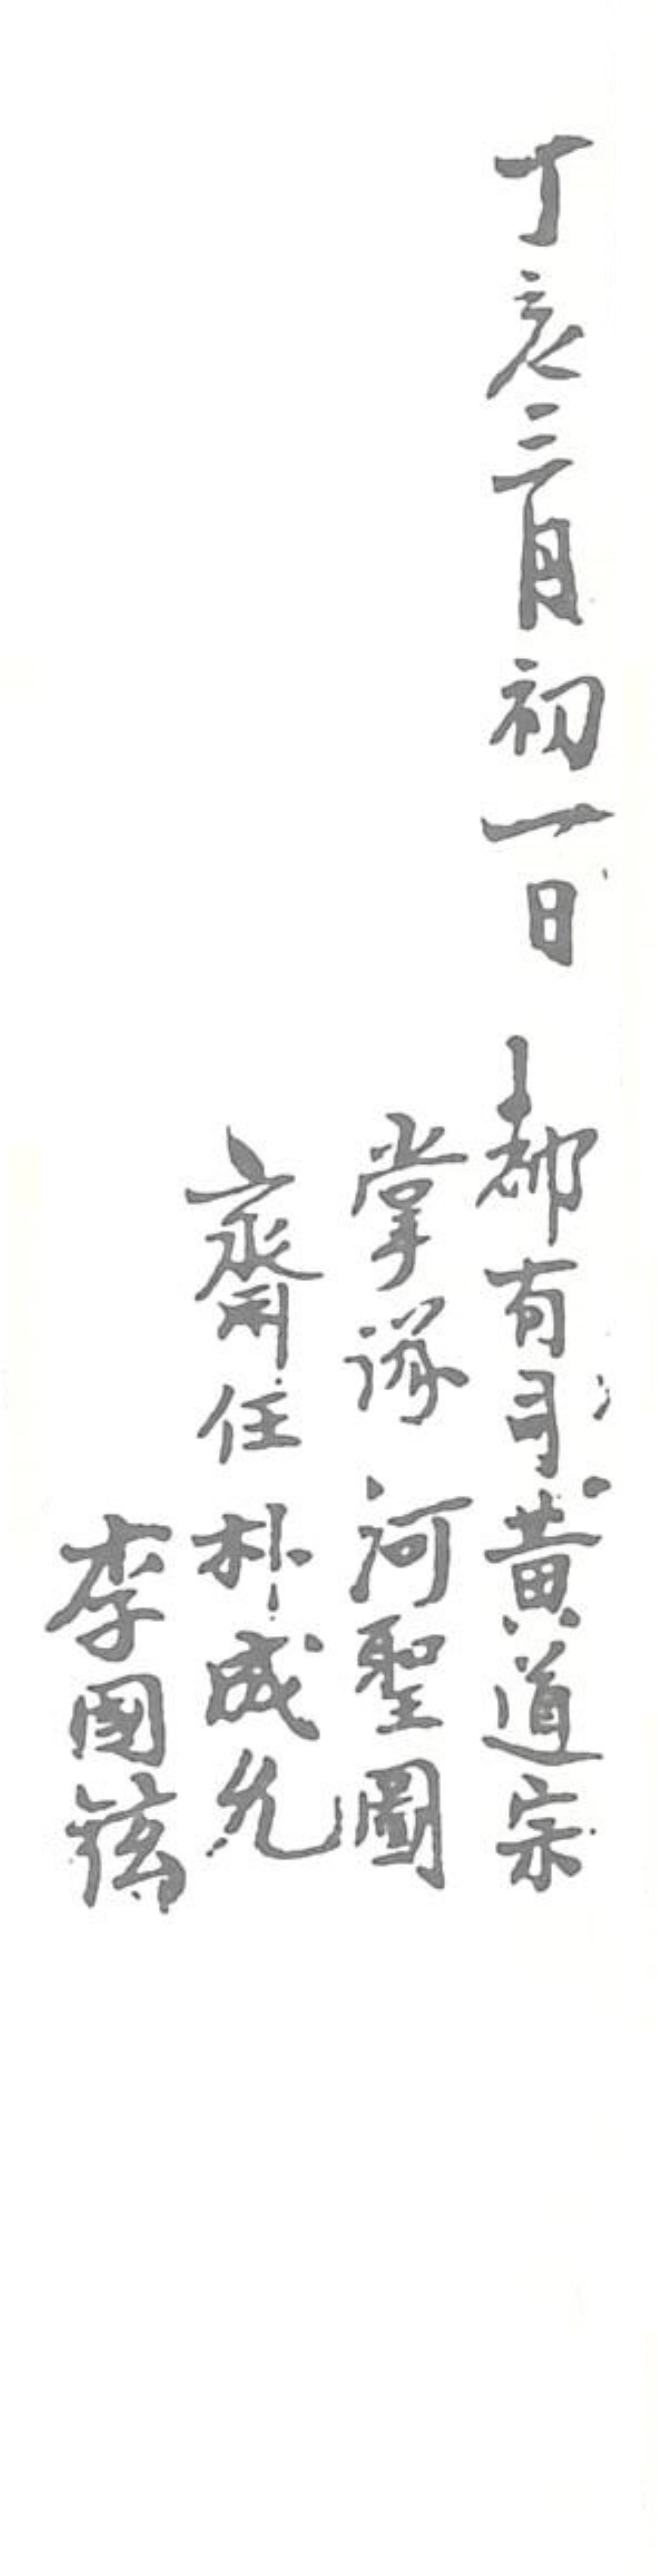 丁亥三月初一日 都有司 黃道宗
掌議 河聖圖
齋任 朴成允
李國鉉